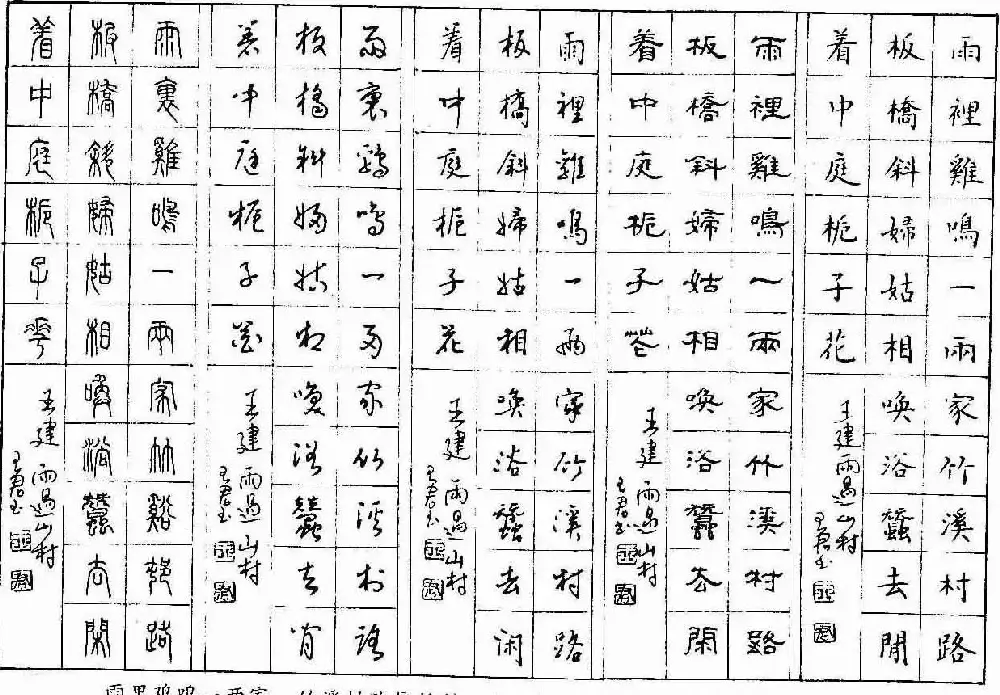 雨裡雞鳴一兩家竹溪村路
板橋斜婦姑相喚浴蠶去閒
着中庭栀子花
王建 雨過山村
雨裡雞鳴一兩家竹溪村路
板橋斜婦姑相喚浴蠶去閑
着中庭栀子花
王建 雨過山村
雨裡雞鳴一兩家竹溪村路
板橋斜婦姑相喚浴蠶去闲
着中庭栀子花
王建 雨過山村
雨裏鷄鳴一兩家竹溪村路
板橋斜婦姑相喚浴蠶去闲
着中庭栀子花
王建 雨過山村
雨裏雞鳴一兩家竹谿邨路
板橋斜婦姑相喚浴蠶去閑
着中庭栀子花
王建 雨過山村